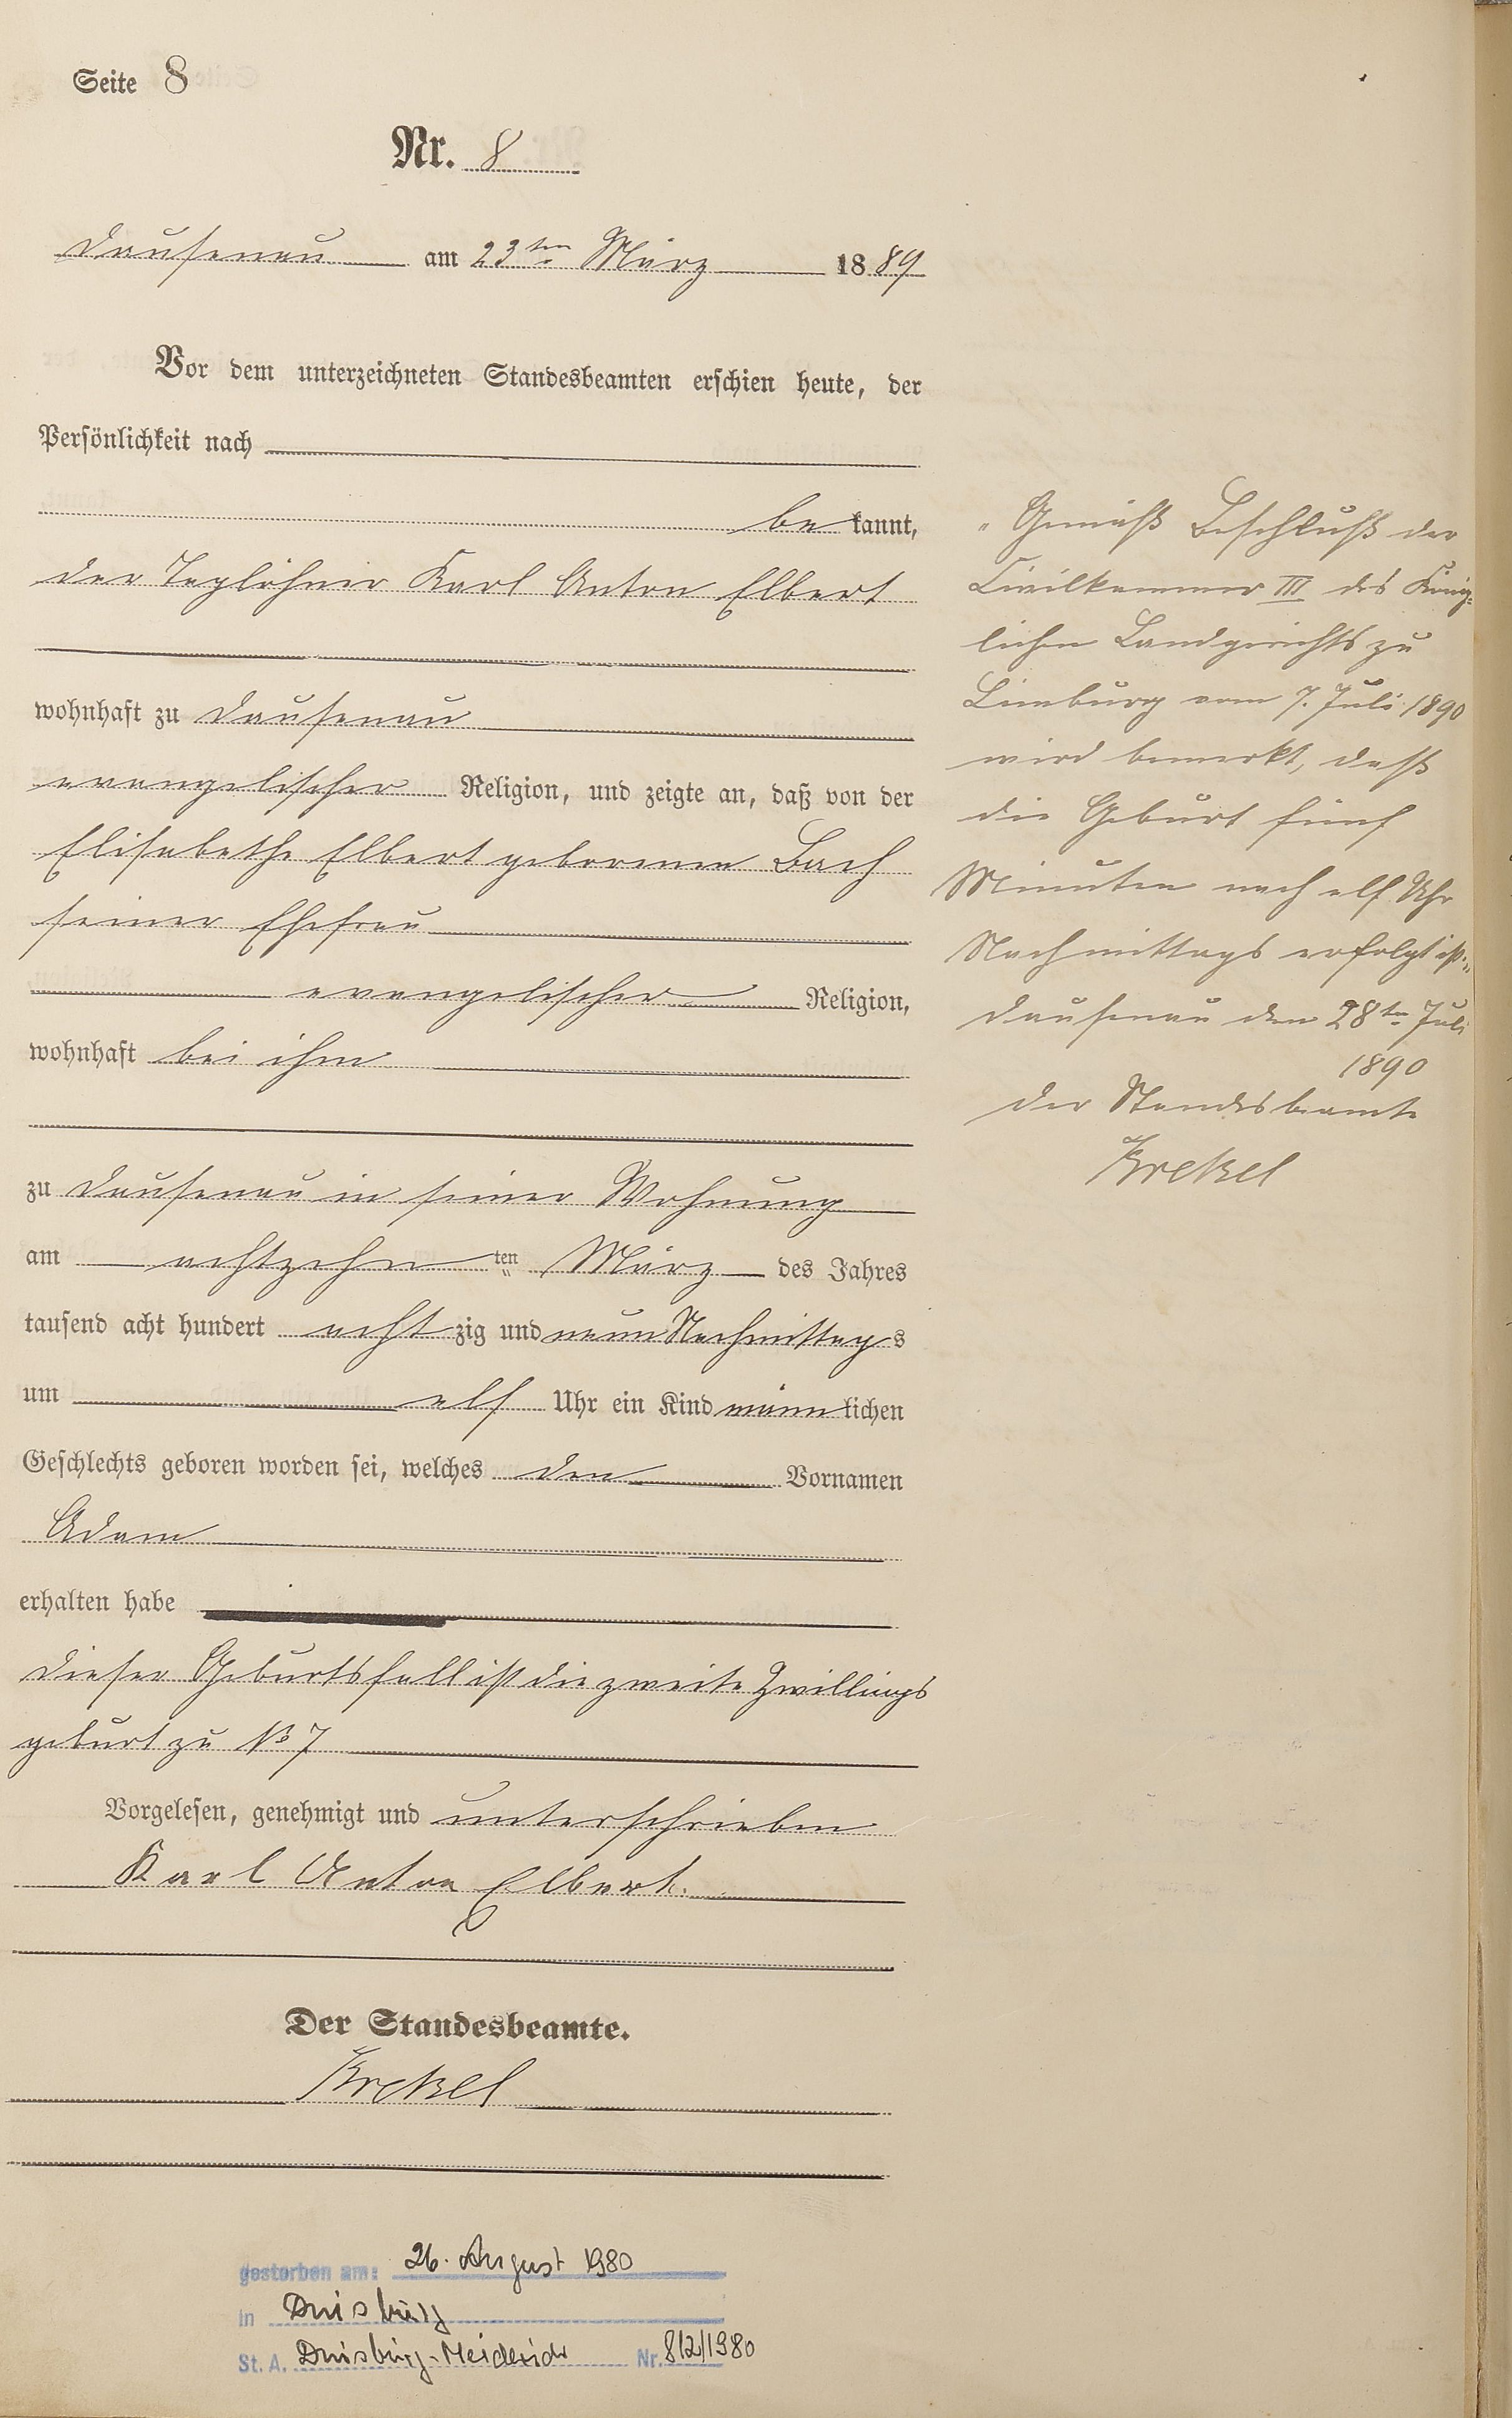 Seite 8
Nr. 8
Dausenau am 23ten März 1889
Vor dem unterzeichneten Standesbeamten erschien heute, der
Persönlichkeit nach
bekannt,
der Taglöhner Karl Anton Elbert
wohnhaft zu Dausenau
evangelischer Religion, und zeigte an, daß von der
Elisabethe Elbert geborenen Bach
seiner Ehefrau
evangelischer Religion,
wohnhaft bei ihm
zu Dausenau in seiner Wohnung
am achtzehnten März des Jahres
tausend acht hundert achtzig und neun Nachmittags
um elf Uhr ein Kind männlichen
Geschlechts geboren worden sei, welches den Vornamen
Adam
erhalten habe
Dieser Geburtsfall ist die zweite Zwillings
geburt zu No 7
Vorgelesen, genehmigt und unterschrieben
Karl Anton Elbert.
Der Standesbeamte.
Krekel
gestorben am: 26. August 1980
in Duisburg
St. A. Duisburg-Meiderich Nr. 812/1980
"Gemäß Beschluß der
Civilkammer III des König-
lichen Landgerichts zu
Limburg vom 7. Juli 1890
wird bemerkt, daß
die Geburt fünf
Minuten nach elf Uhr
Nachmittags erfolgt ist."
Dausenau den 28ten Juli
1890
Der Standesbeamte
Krekel